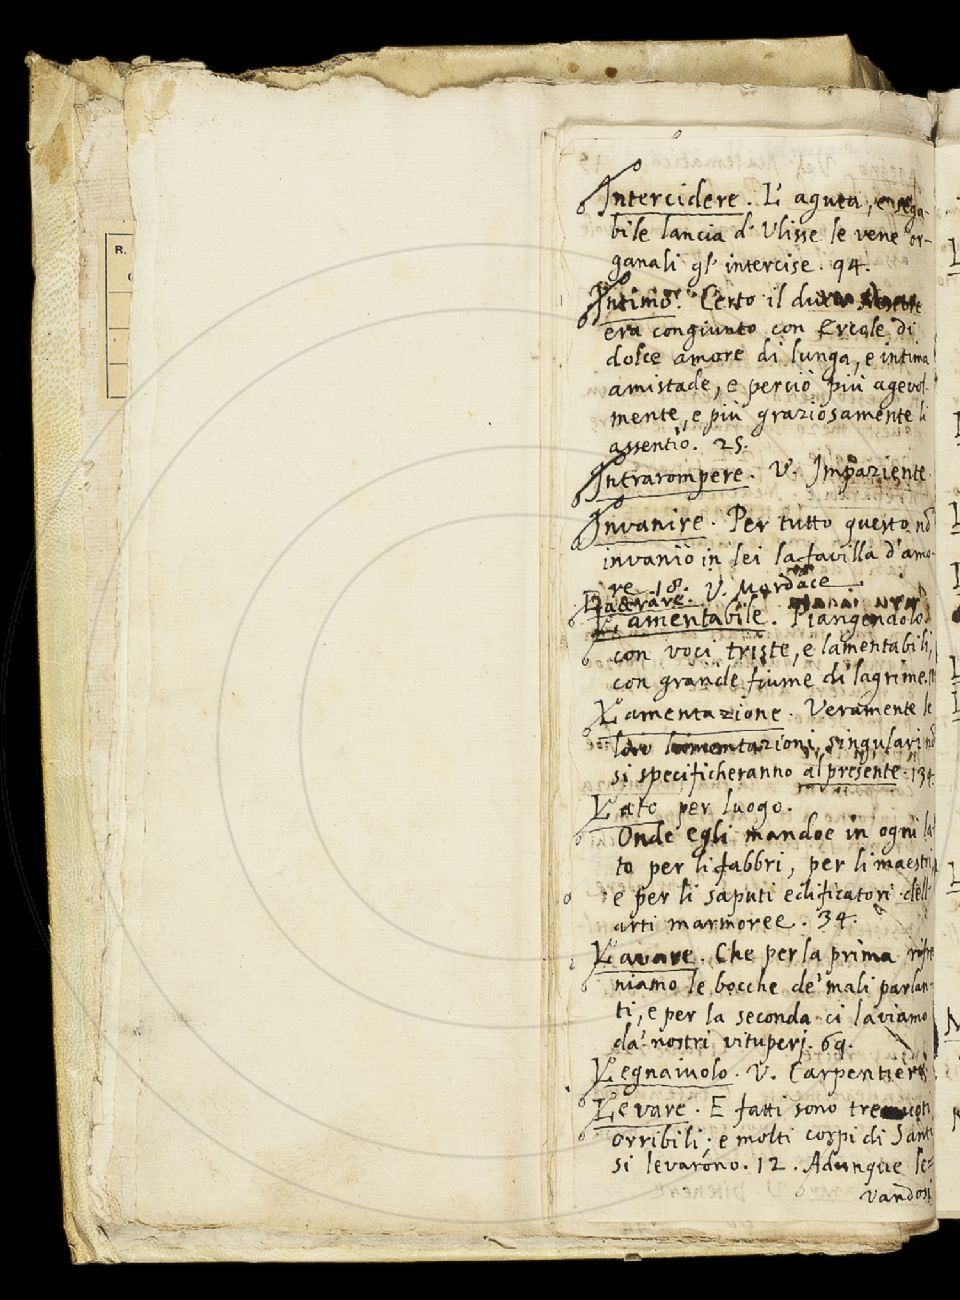 R.
Intercidere. L' aguta, e sega-
bile lancia d' Ulisse le vene or-
ganali gl' intercise. 94.
Intimo. Certo il
era congiunto con Ercole di
dolce amore di lunga, e intima
amistade, e perciò più agevol-
mente, e più graziosamente li
assentìo. 25.
Intrarompere. V. Impaziente
Invanire. Per tutto questo nō
invanìo in lei la favilla d'amo-
re. 18. V. Mordace
Lacerare.
Lamentabile. Piangendolo
con voci triste, e lamentabili,
con grande fiume di lagrime.
Lamentazione. Veramente le
loro lamentazioni singulari nō
si specificheranno al presente. 134.
Lato per luogo.
Onde egli mandoe in ogni la-
to per li fabbri, per li maestri,
e per li saputi edificatori dell'
arti marmoree. 34.
Lavare. Che per la prima
niamo le bocche de' mali parlan-
ti, e per la seconda ci laviamo
da' nostri vituperj. 69.
Legnaiuolo. V. Carpentieri
Levare. E fatti sono tremuoti
orribili; e molti corpi di Santi
si levarono. 12. Adunque le-
vandosi